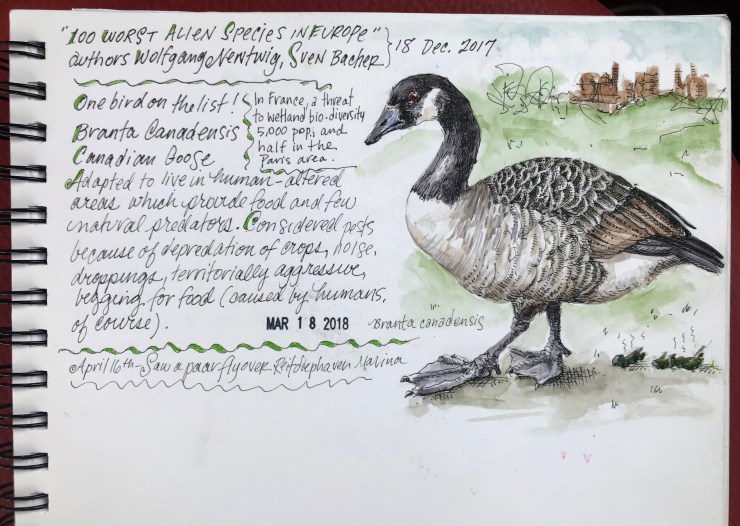 "100 WORST ALIEN SPECIES IN EUROPE"
authors Wolfgang Nentwig, Sven Bacher
18 Dec. 2017
One bird on the list!
Branta Canadensis
Canadian Goose
In France, a threat
to wetland bio-diversity
5,000 pop, and
half in the
Paris area.
Adapted to live in human-altered
areas which provide food and few
natural predators. Considered pests
because of depredation of crops, noise,
droppings, territorially aggressive,
begging for food (caused by humans,
of course).
MAR 18 2018
Branta canadensis
April 16th - Saw a pair flyover Reitdiephaven Marina